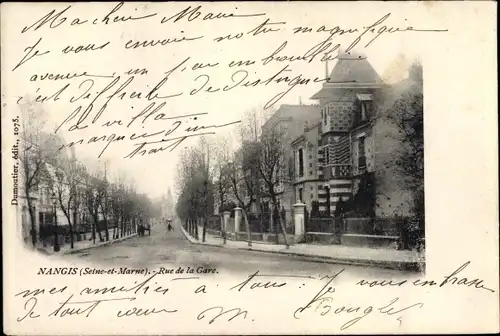 Ma chère Marie
Je vous envoie notre magnifique
avenue un en
c'est difficile de distinguer
la villa
marquée d'un
trait
Dumoutier, édit., 1075.
NANGIS (Seine-et-Marne). - Rue de la Gare.
mes amitiés à tous Je vous embrasse
de tout cœur